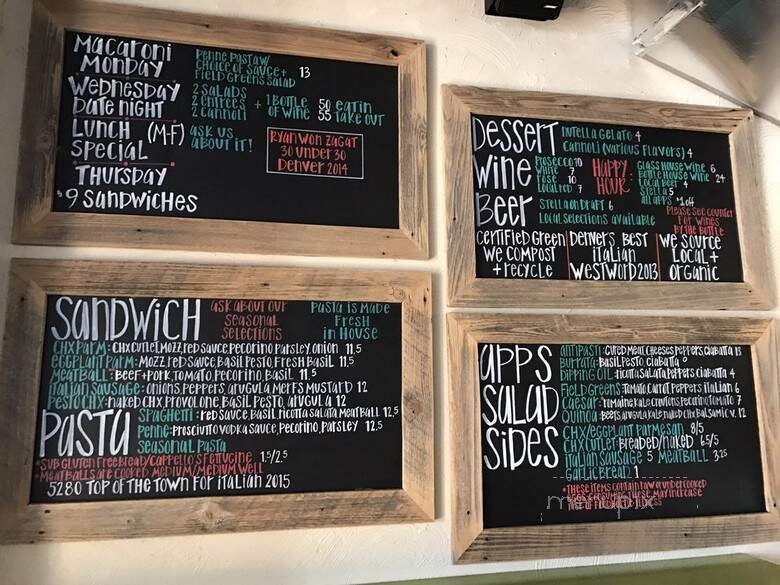 Macaroni Monday
Penne Pasta w/
Choice of Sauce +
Field Greens Salad
13
Wednesday Date Night
2 Salads
2 Entrees
2 Cannoli
+ 1 Bottle of Wine
50 eat in
55 take out
Lunch Special (M-F)
ask us about it!
Thursday
$9 Sandwiches
Ryan won Zagat
30 under 30
Denver 2014
Dessert
Nutella Gelato 4
Cannoli (various flavors) 4
Wine
Prosecco 10
White 7
Rose 10
Local Red 7
Happy Hour:
Glass House Wine 6
Bottle House Wine 24
Local Beer 4
Stella 5
all apps $1 off
Beer
Stella on Draft 6
Local Selections available
Please see counter
for wines
by the bottle
Certified Green
We Compost
+ Recycle
Denver's Best
Italian
Westword 2013
We Source
Local +
Organic
Sandwich
ask about our
seasonal
selections
Pasta is made
fresh
in house
Chx Parm: Chx Cutlet, Mozz, red sauce, Pecorino, Parsley, onion 11.5
Eggplant Parm: Mozz, red sauce, Basil Pesto, Fresh Basil 11.5
Meatball: Beef + Pork, Tomato, Pecorino, Basil 11.5
Italian Sausage: onions, Peppers, arugula, Merfs Mustard 12
Pesto Chx: naked Chx, Provolone, Basil Pesto, arugula 12
Pasta
Spaghetti: red sauce, Basil, ricotta salata, Meatball 12.5
Penne: Prosciutto vodka sauce, Pecorino, Parsley 12.5
Seasonal Pasta
*Sub Gluten Free Bread/Cappello's Fettucine 1.5/2.5
*Meatballs are cooked medium/medium well
5280 Top of the Town for Italian 2015
Apps
Antipasti: Cured Meat, Cheeses, Peppers, Ciabatta 13
Burrata: Basil Pesto, Ciabatta 9
Dipping Oil: ricotta salata, Peppers, Ciabatta 4
Salad
Field Greens: Tomato, Carrot, Peppers, Italian 6
Caesar: romaine, kale, croutons, Pecorino, Tomato 7
Quinoa: Beets, arugula, kale, naked Chx, Balsamic v. 12
Sides
Chx/Eggplant Parmesan 8/5
Chx Cutlet: Breaded/naked 6.5/5
Italian Sausage 5 Meatball 3.25
Garlic Bread 1
*These items contain raw or undercooked